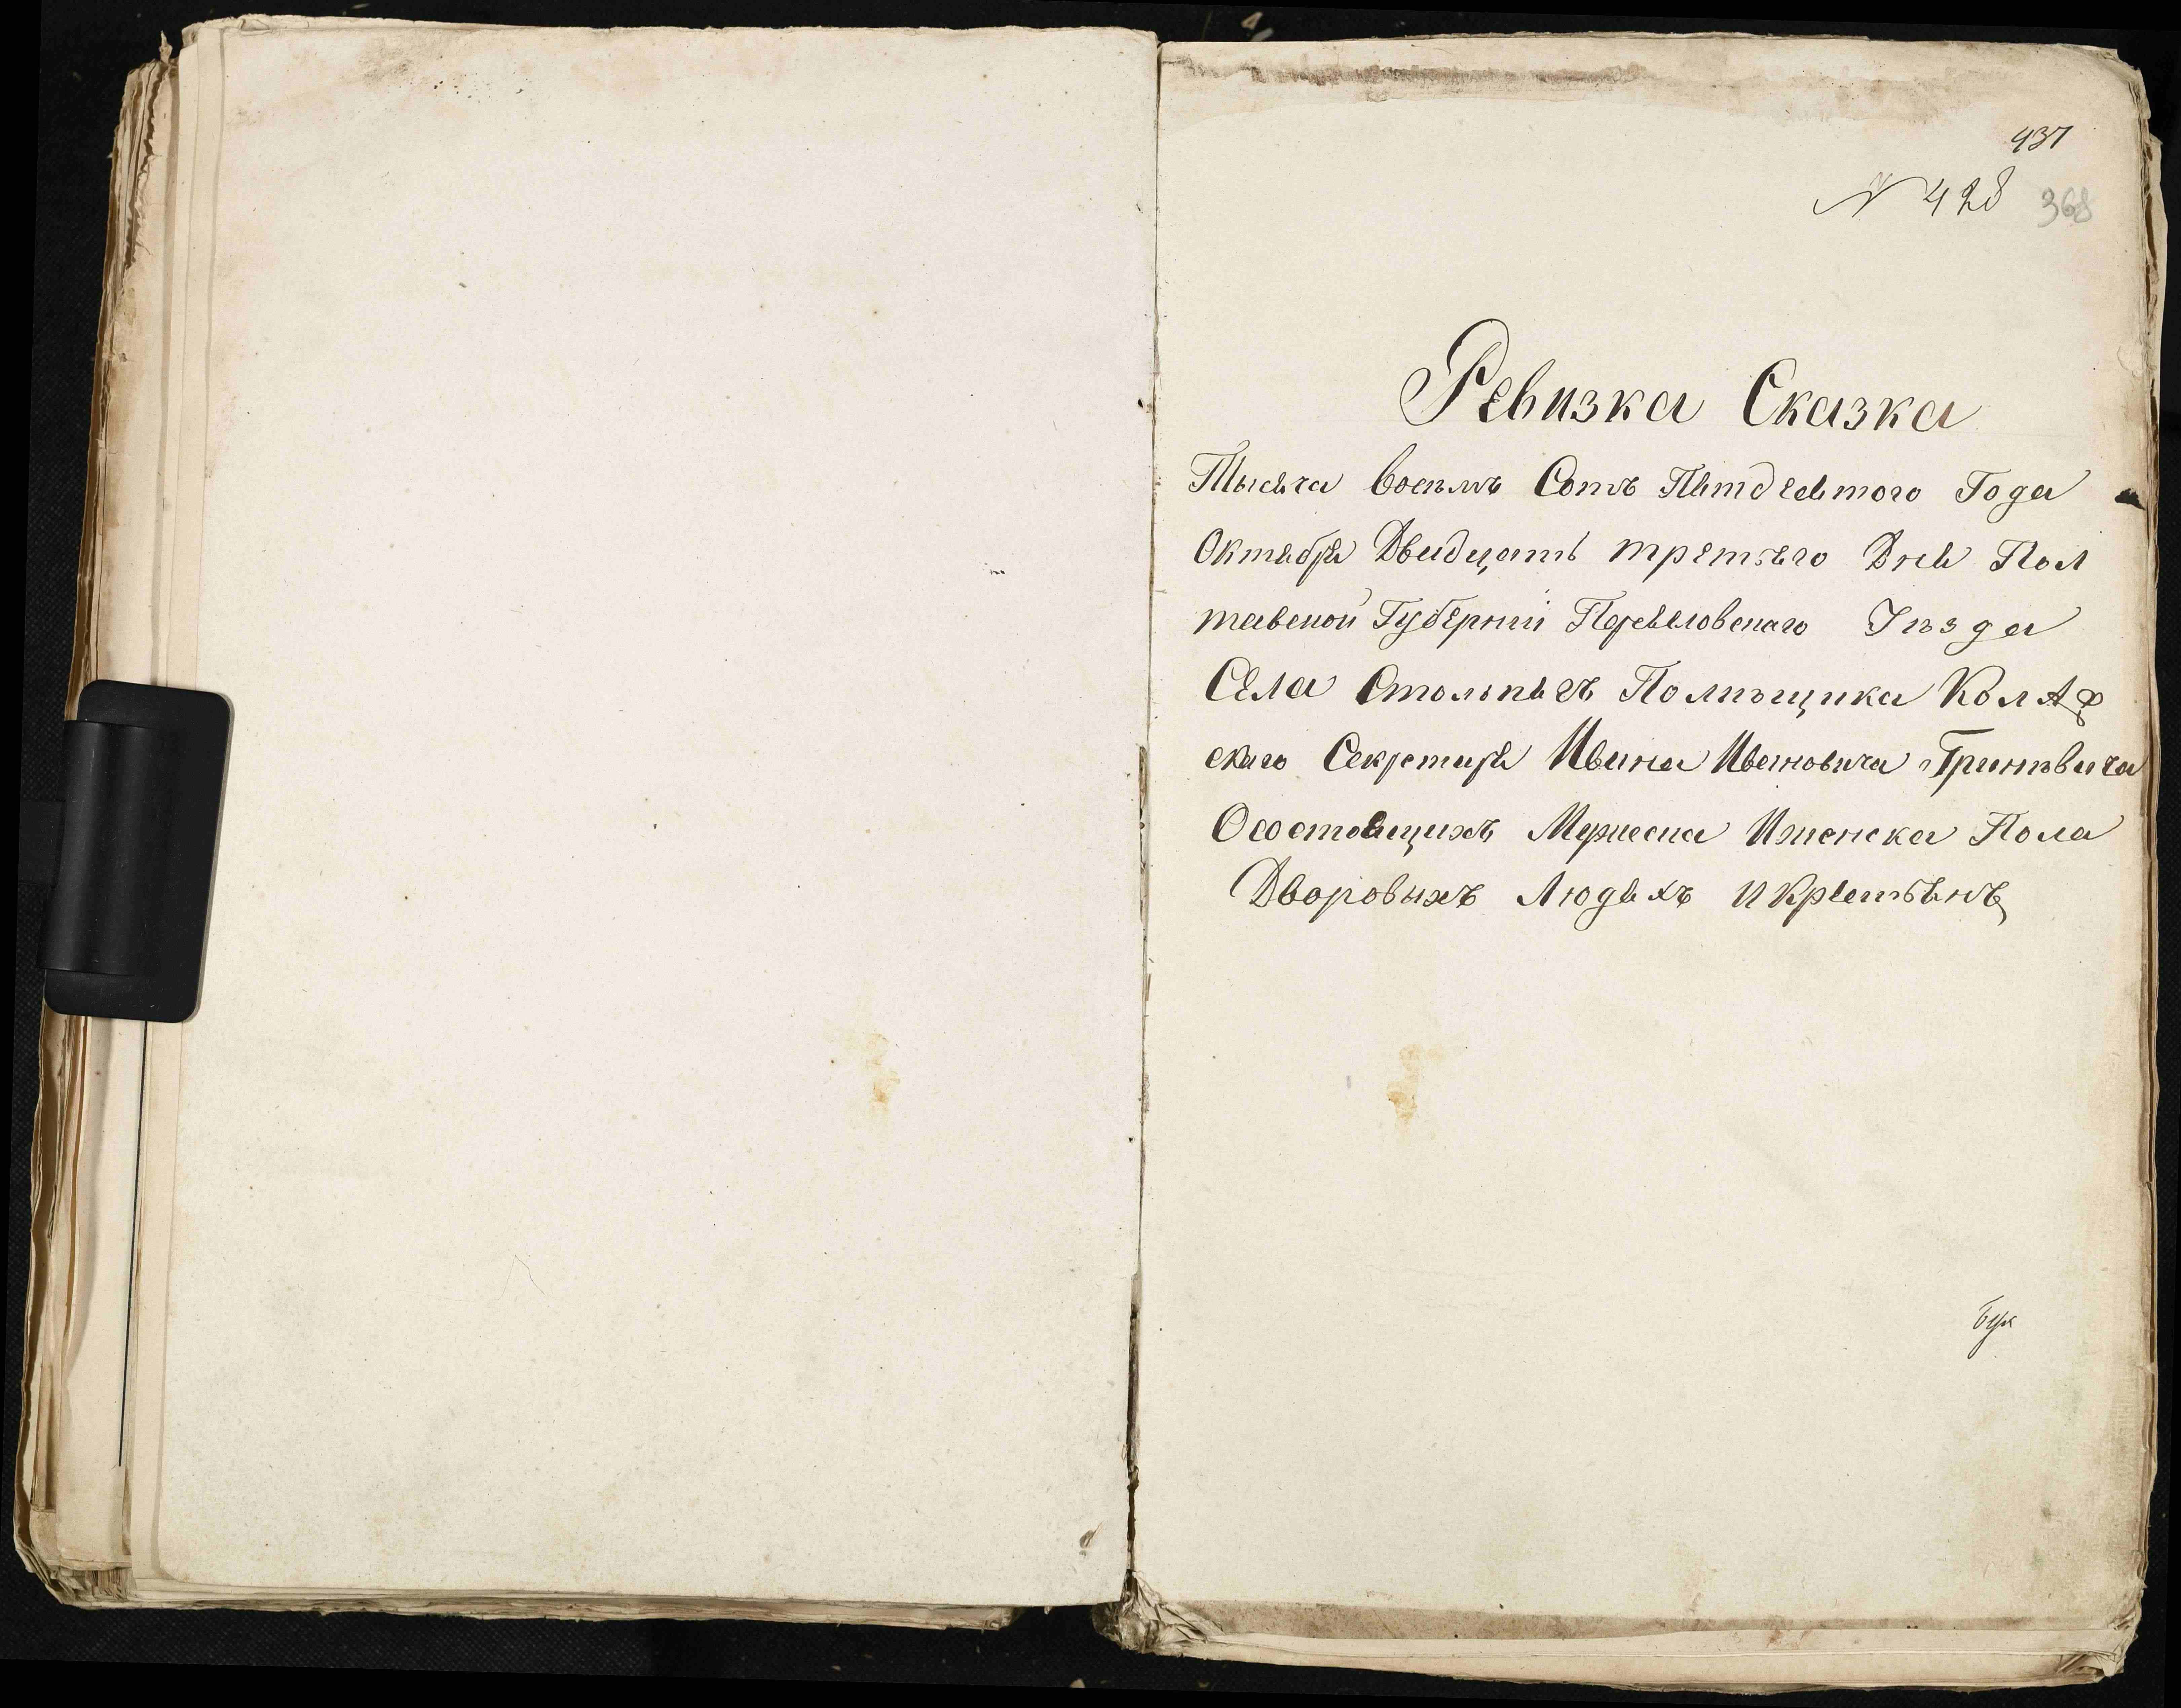 437
N 428 368
Ревизка Сказка
Тысяча Восемъ Сотъ Пятдесятого Года
Октября Двадцать третьего Дня Пол
тавской Губернии Переяловскаго Уѣзда
Села Столпяг Помѣщика
скаго Секретаря Ивана Ивановича Гриневича
Осостоящихъ Мужеска Иженска Пола
Дворовыхъ Людяхъ и